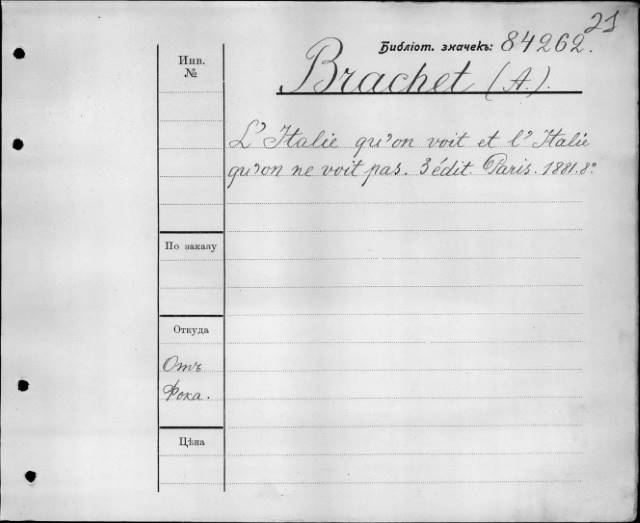 21
Библіот. значекъ: 84262.
Инв.
№
Brachet (A.).
L'Italie qu'on voit et l'Italie
qu'on ne voit pas. 3 édit. Paris. 1881. 8º
По заказу
Откуда
Отъ
Фока.
Цѣна